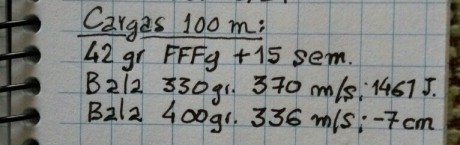 Cargas 100 m:
42 gr FFFg + 15 sem.
Bala 330gr. 370 m/s; 1461 J.
Bala 400gr. 336 m/s; -7cm